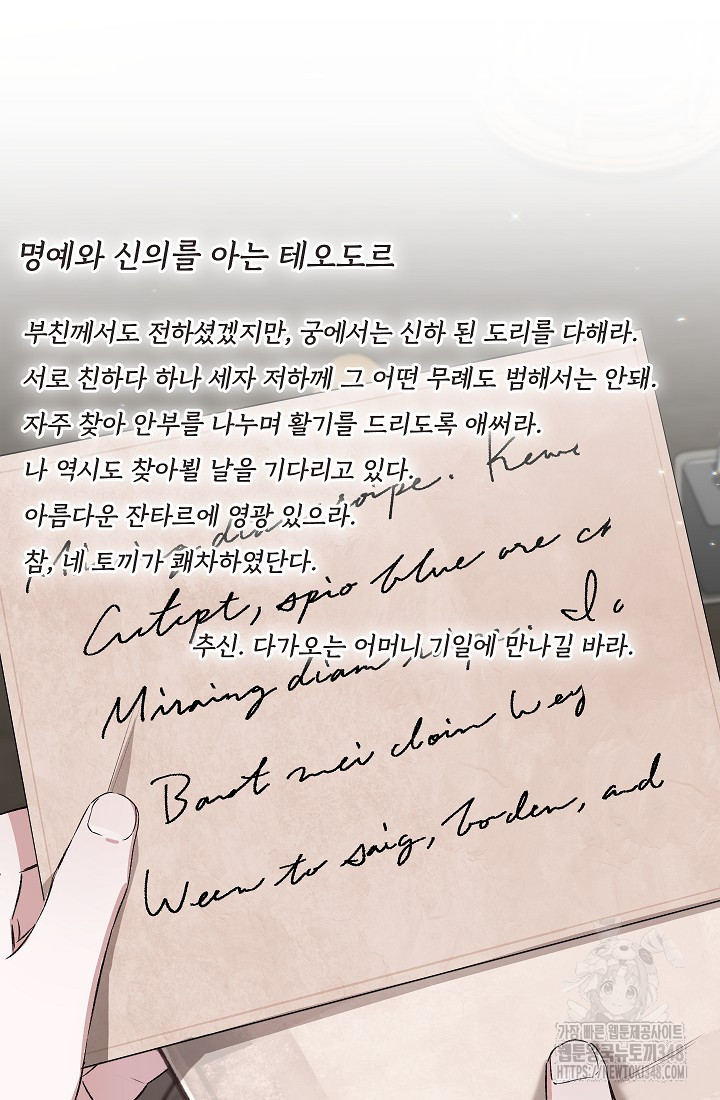 명예와 신의를 아는 테오도르
부친께서도 전하셨겠지만, 궁에서는 신하 된 도리를 다해라.
서로 친하다 하나 세자 저하께 그 어떤 무례도 범해서는 안돼.
자주 찾아 안부를 나누며 활기를 드리도록 애써라.
나 역시도 찾아뵐 날을 기다리고 있다.
아름다운 잔타르에 영광 있으라.
참, 네 토끼가 쾌차하였단다.
Cutept, spio blue are
추신. 다가오는 어머니 기일에 만나길 바라.
Miraing diam
Barot mei cloin wey
Ween to saig, borden, and
가장 빠른 웹툰제공사이트
웹툰왕국뉴토끼348
https://newtoki348.com